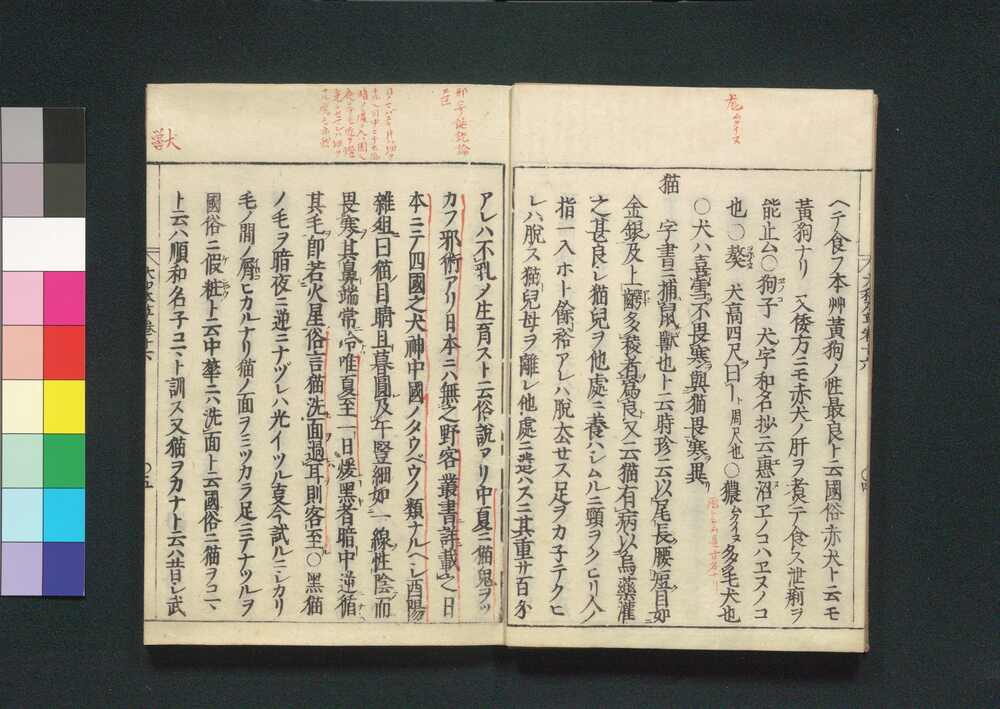 尨 ムクイヌ
ヘテ食フ本艸黃狗ノ性最良ト云國俗赤犬ト云モ
黃狗ナリ 又倭方ニモ赤犬ノ肝ヲ煮テ食ス泄痢ヲ
能止ム○狗子 犬字和名抄云惠沼ヱノコハヱヌノコ
也○獒 犬高四尺曰獒ト周尺也○獽ムクイヌ多毛犬也
○犬ハ喜雪不畏寒與猫畏寒異
猫 字書ニ捕鼠獸也ト云時珍云以尾長腰短目如
金銀及上齶多稜者爲良又云猫有病以烏藥灌
之甚良シ猫兒ヲ他處ニ養ハシムルニ頸ヲクヒリ入
指一入ホト餘裕アレハ脫太公セス足ヲカ子テクヒ
レハ脫ス猫兒母ヲ離レ他處ニ遣ハスニ其重サ百匁
邪妄誕說論
アレハ不乳メ生育スト云俗說アリ中夏ニ猫鬼ヲツ
カフ邪術アリ日本ニハ無之野客叢書詳載之日
本ニテ四國之犬神中國ノタウベウノ類ナルヘシ酉陽
雜組曰猫目睛旦暮圓及午豎細如一線性陰而
畏寒其鼻端常冷唯夏至一日煖黑者暗中逆循
其毛卽若火星俗言猫洗面過耳則客至○黑猫
ノ毛ヲ暗夜ニ逆ニナヅレハ光イツル妄今試ルニシカリ
毛ノ間ノ屑ヒカルナリ猫ノ面ヲミツカラ足ニテナツルヲ
國俗ニ假粧ト云中華ニハ洗面ト云國俗ニ猫ヲコ丶
ト云ハ順和名子コ丶ト訓ス又猫ヲカナト云ハ昔シ武
獸
犬